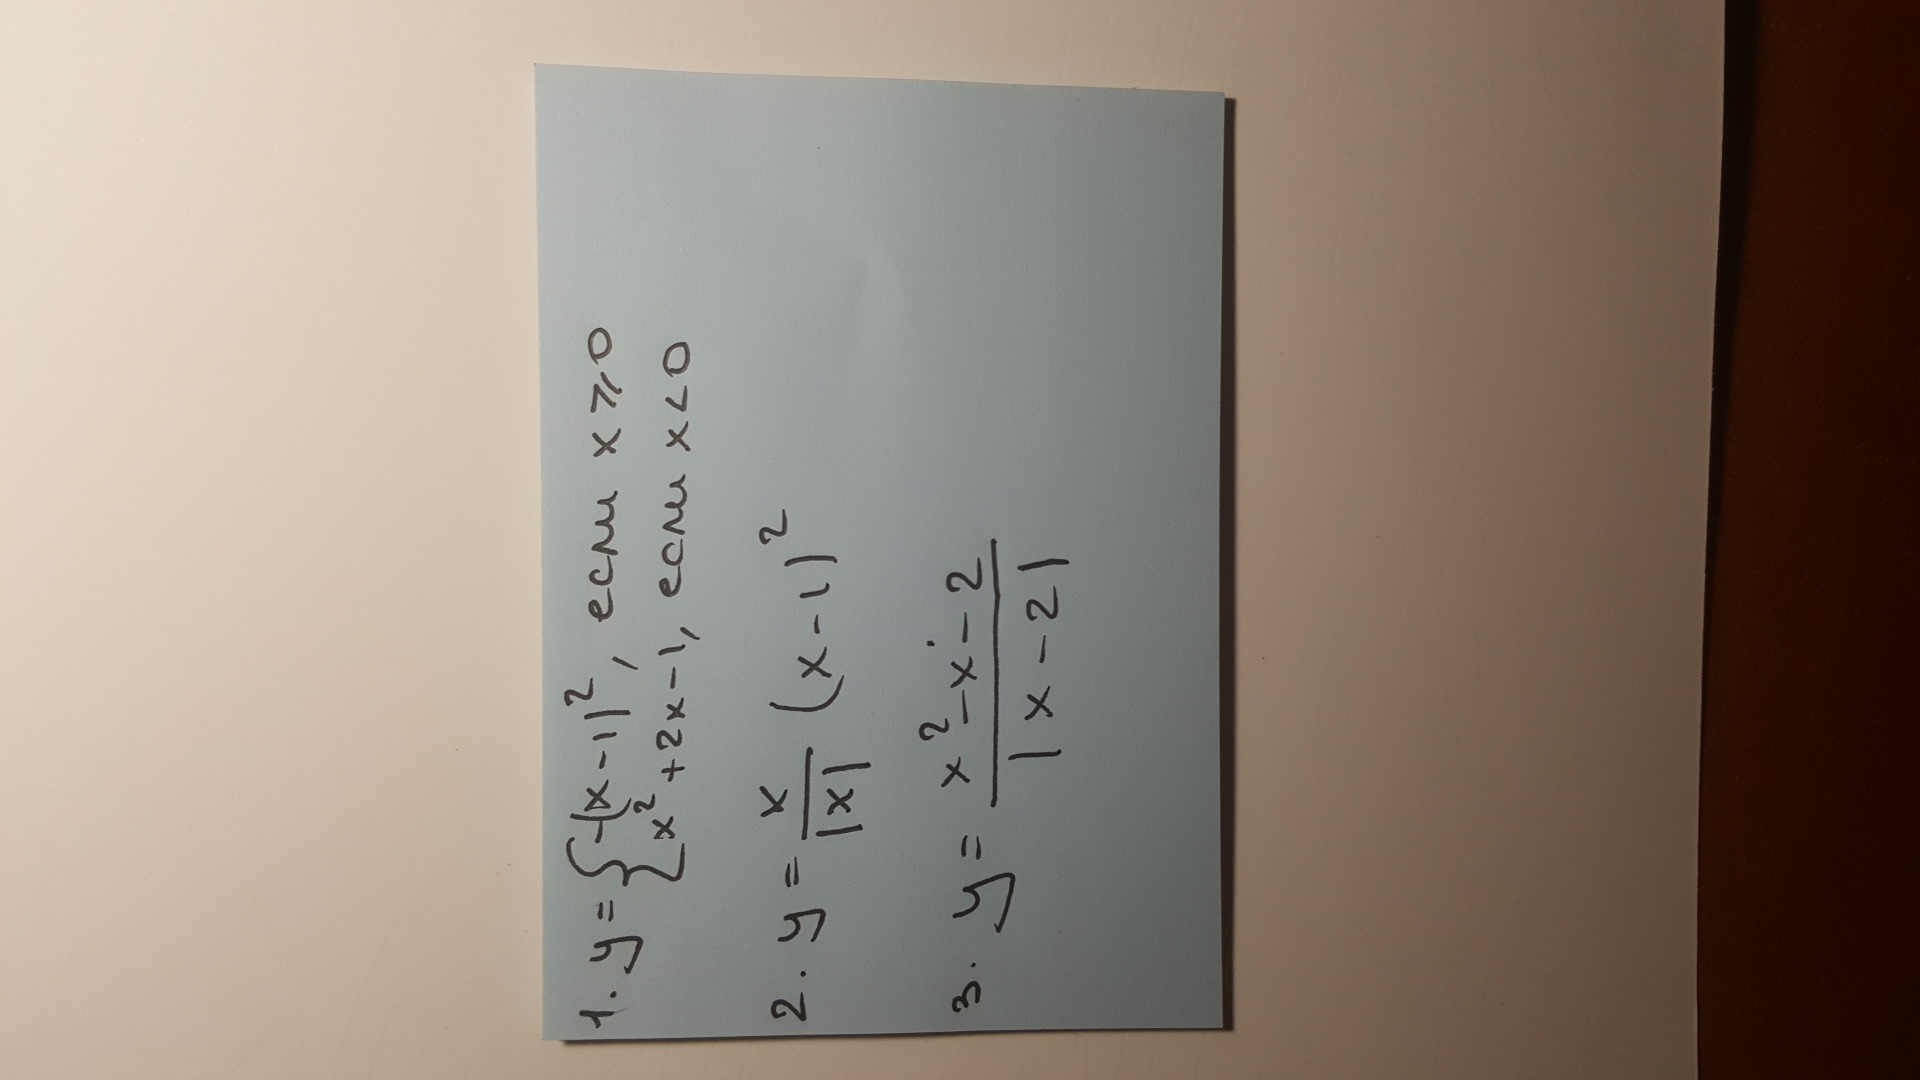 1. y = { -(x-1)², если x ⩾ 0
x² + 2x - 1, если x < 0
2. y = x/|x| (x-1)²
3. y = x² - x - 2 / |x - 2|